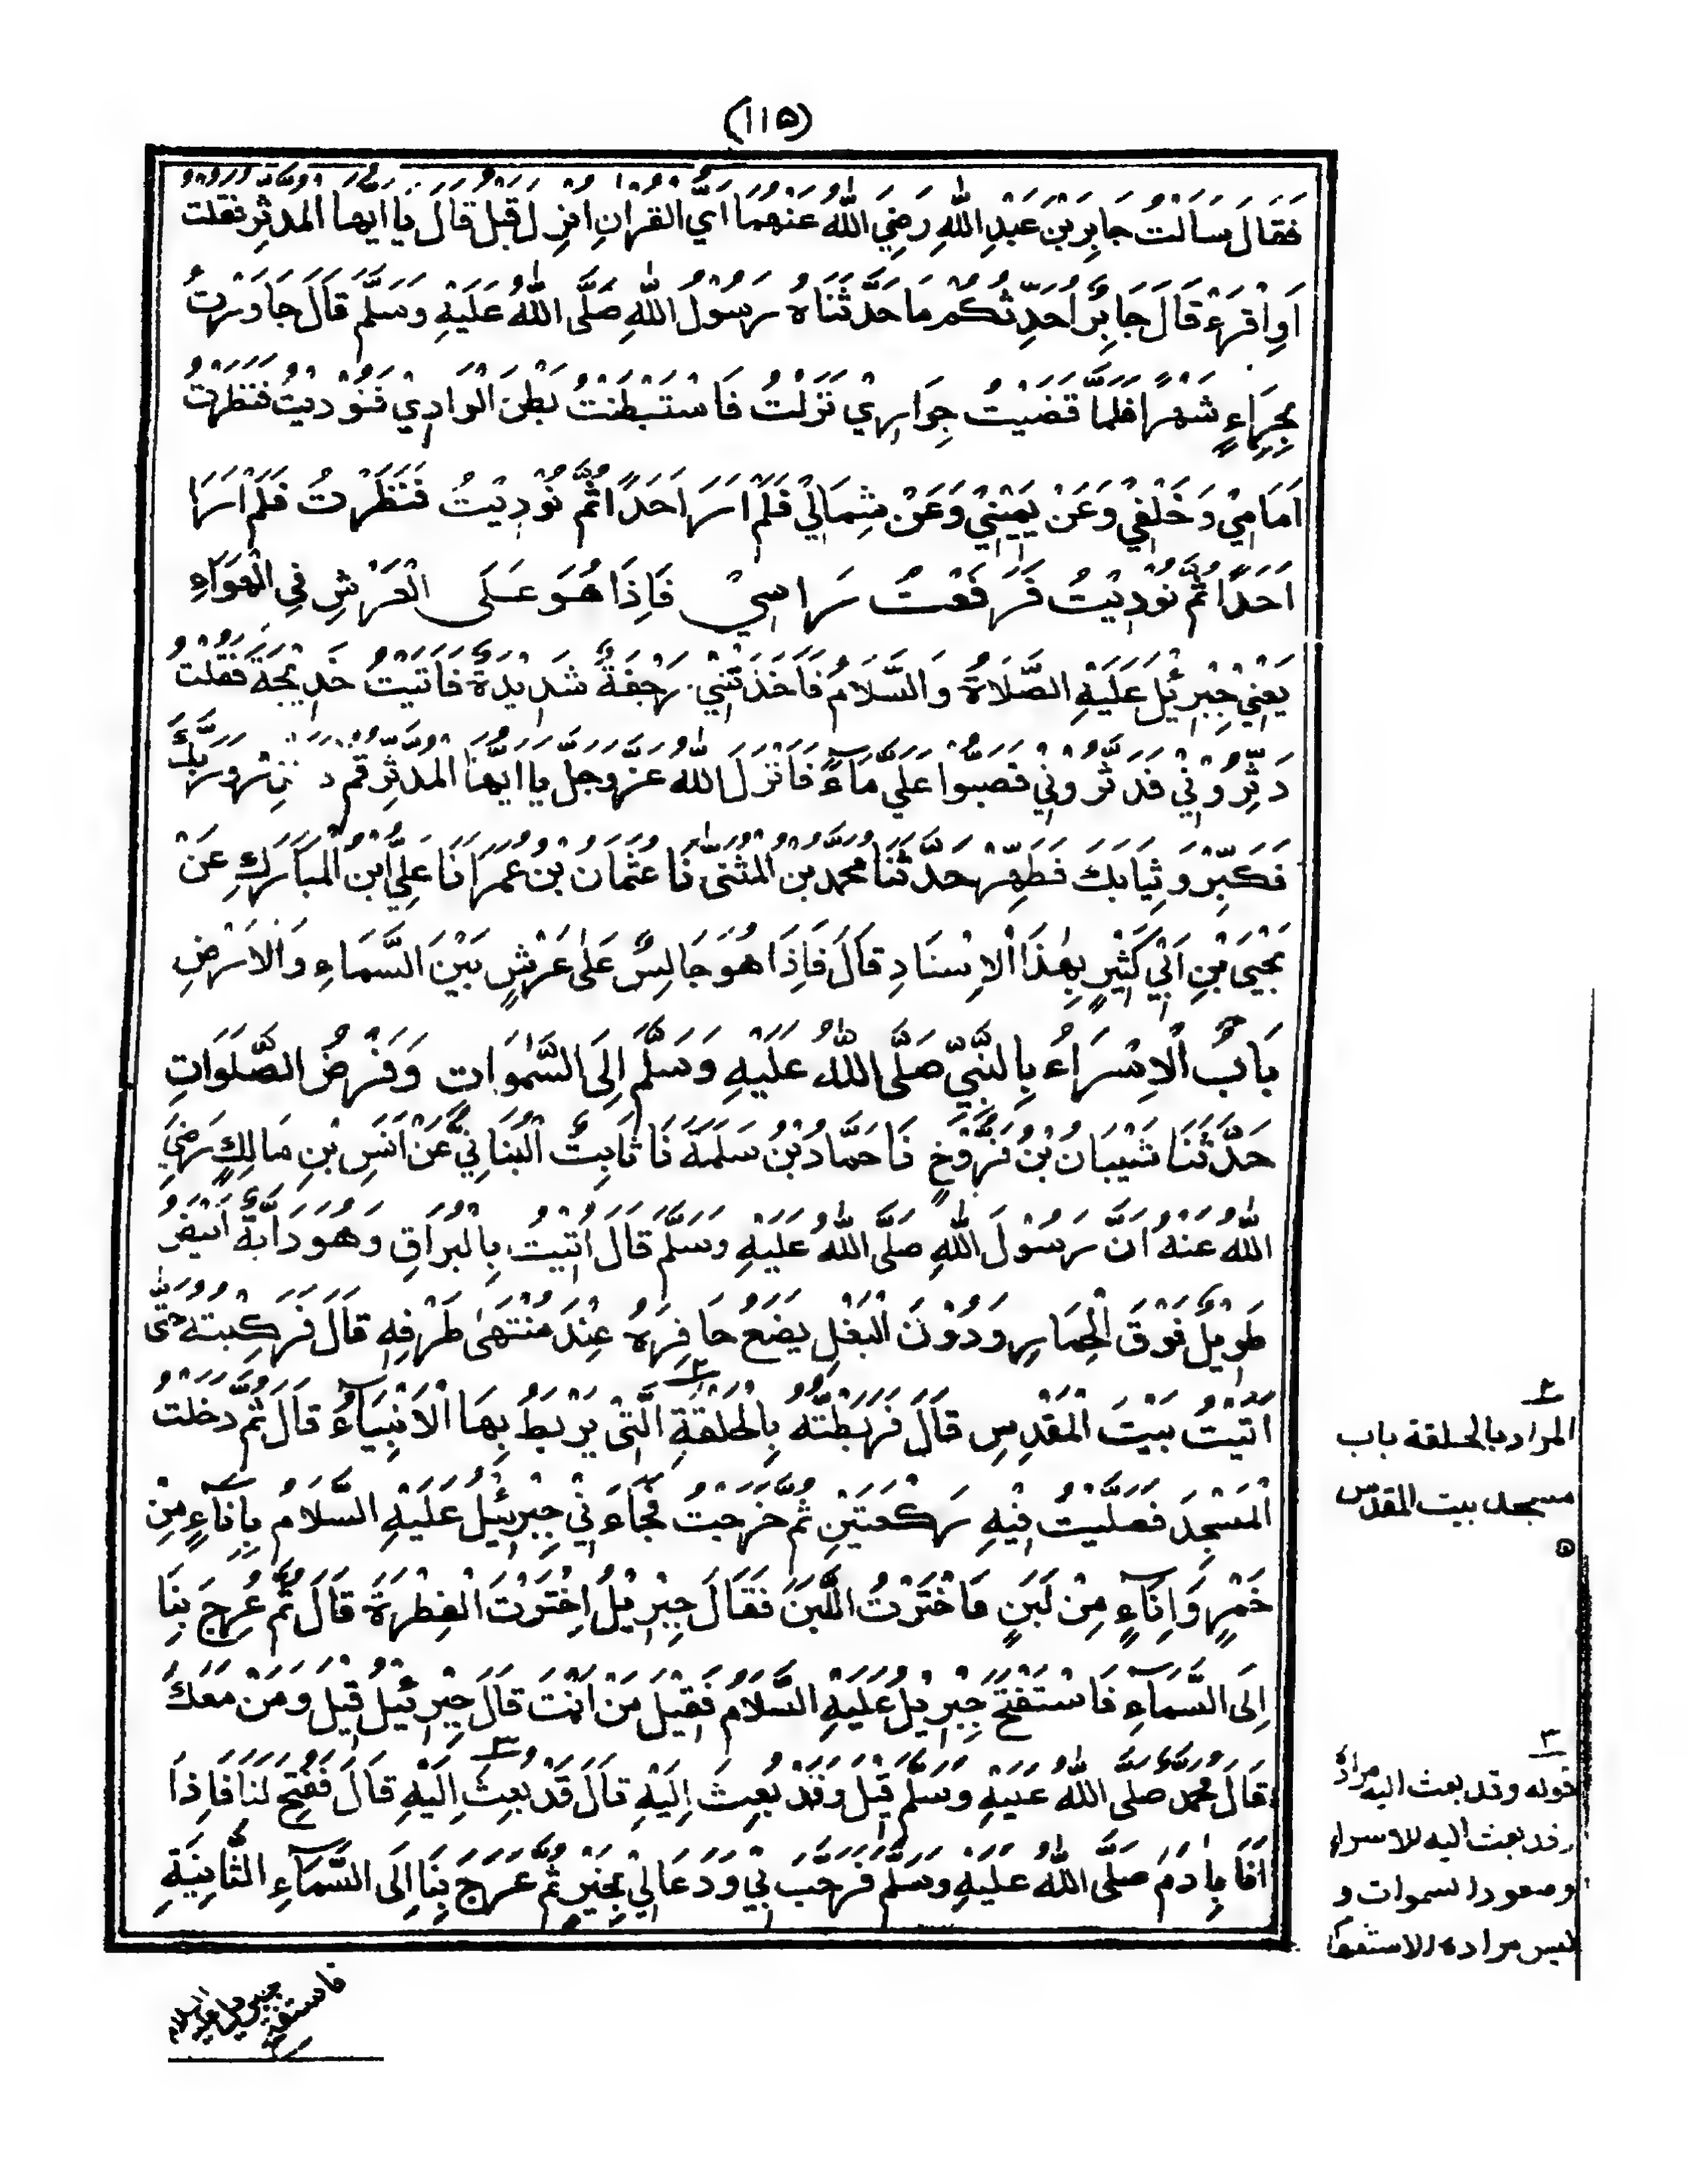 (١١٥)
فَقَالَ سَاَلْتُ جَابِرَ بْنَ عَبْدِ اللّٰهِ رَضِيَ اللّٰهُ عَنْهُمَا اَيُّ الْقُرْاٰنِ اُنْزِلَ قَبْلُ قَالَ يَا اَيُّهَا الْمُدَّثِّرُ فَقُلْتُ
اَوِ اقْرَءْ قَالَ جَابِرٌ اُحَدِّثُكُمْ مَا حَدَّثَنَاهُ رَسُوْلُ اللّٰهِ صَلَّى اللّٰهُ عَلَيْهِ وَسَلَّمَ قَالَ جَاوَرْتُ
بِحِرَاءٍ شَهْرًا فَلَمَّا قَضَيْتُ جِوَارِيْ نَزَلْتُ فَاسْتَبْطَنْتُ بَطْنَ الْوَادِيْ فَنُوْدِيْتُ فَنَظَرْتُ
اَمَامِيْ وَخَلْفِيْ وَعَنْ يَمِيْنِيْ وَعَنْ شِمَالِيْ فَلَمْ اَرَ اَحَدًا ثُمَّ نُوْدِيْتُ فَنَظَرْتُ فَلَمْ اَرَا
اَحَدًا ثُمَّ نُوْدِيْتُ فَرَفَعْتُ رَاسِيْ فَاِذَا هُوَ عَلَى الْعَرْشِ فِي الْهَوَاءِ
يَعْنِيْ جِبْرِئِيْلَ عَلَيْهِ الصَّلَاةُ وَالسَّلَامُ فَاَخَذَتْنِيْ رَجْفَةٌ شَدِيْدَةٌ فَاَتَيْتُ خَدِيْجَةَ فَقُلْتُ
دَثِّرُوْنِيْ فَدَثَّرُوْنِيْ فَصَبُّوْا عَلَيَّ مَآءً فَاَنْزَلَ اللّٰهُ عَزَّ وَجَلَّ يَا اَيُّهَا الْمُدَّثِّرُ قُمْ فَاَنْذِرْ وَرَبَّكَ
فَكَبِّرْ وَثِيَابَكَ فَطَهِّرْ حَدَّثَنَا مُحَمَّدُ بْنُ الْمُثَنّٰى نَا عُثْمَانُ بْنُ عُمَرَ اَنَا عَلِيُّ ابْنُ الْمُبَارَكِ عَنْ
يَحْيَى بْنِ اَبِيْ كَثِيْرٍ بِهٰذَا الْاِسْنَادِ قَالَ فَاِذَا هُوَ جَالِسٌ عَلٰى عَرْشٍ بَيْنَ السَّمَاءِ وَالْاَرْضِ
بَابُ الْاِسْرَاءُ بِالنَّبِيِّ صَلَّى اللّٰهُ عَلَيْهِ وَسَلَّمَ اِلَى السَّمٰوَاتِ وَفَرْضُ الصَّلَوَاتِ
حَدَّثَنَا شَيْبَانُ بْنُ فَرُّوْخٍ نَا حَمَّادُ بْنُ سَلَمَةَ نَا ثَابِتٌ الْبُنَانِيُّ عَنْ اَنَسِ بْنِ مَالِكٍ رَضِيَ
اللّٰهُ عَنْهُ اَنَّ رَسُوْلَ اللّٰهِ صَلَّى اللّٰهُ عَلَيْهِ وَسَلَّمَ قَالَ اُتِيْتُ بِالْبُرَاقِ وَهُوَ دَابَّةٌ اَبْيَضُ
طَوِيْلٌ فَوْقَ الْحِمَارِ وَدُوْنَ الْبَغْلِ يَضَعُ حَافِرَهُ عِنْدَ مُنْتَهٰى طَرْفِهِ قَالَ فَرَكِبْتُهُ حَتّٰى
اَتَيْتُ بَيْتَ الْمَقْدِسِ قَالَ فَرَبَطْتُّهُ بِالْحَلْقَةِ الَّتِيْ يَرْبَطُ بِهَا الْاَنْبِيَآءُ قَالَ ثُمَّ دَخَلْتُ
الْمَسْجِدَ فَصَلَّيْتُ فِيْهِ رَكْعَتَيْنِ ثُمَّ خَرَجْتُ فَجَآءَنِيْ جِبْرِئِيْلُ عَلَيْهِ السَّلَامُ بِاِنَآءٍ مِنْ
خَمْرٍ وَاِنَآءٍ مِنْ لَبَنٍ فَاخْتَرْتُ اللَّبَنَ فَقَالَ جِبْرِيْلُ اخْتَرْتَ الْفِطْرَةَ قَالَ ثُمَّ عُرِجَ بِنَا
اِلَى السَّمَآءِ فَاسْتَفْتَحَ جِبْرِيْلُ عَلَيْهِ السَّلَامُ فَقِيْلَ مَنْ اَنْتَ قَالَ جِبْرِئِيْلُ قِيْلَ وَمَنْ مَعَكَ
قَالَ مُحَمَّدٌ صَلَّى اللّٰهُ عَلَيْهِ وَسَلَّمَ قِيْلَ وَقَدْ بُعِثَ اِلَيْهِ قَالَ قَدْ بُعِثَ اِلَيْهِ قَالَ فَفُتِحَ لَنَا فَاِذَا
اَنَا بِاٰدَمَ صَلَّى اللّٰهُ عَلَيْهِ وَسَلَّمَ فَرَحَّبَ بِيْ وَدَعَا لِيْ بِخَيْرٍ ثُمَّ عَرَجَ بِنَا اِلَى السَّمَآءِ الثَّانِيَةِ
٢
المراد بالحلقة باب
مسجد بيت المقدس
٣
قوله وقد بعث اليه مراده
وقد بعث اليه للاسراء
وصعود السموات و
ليس مراده الاستفها
فاستفتح جبريل عليه السلام